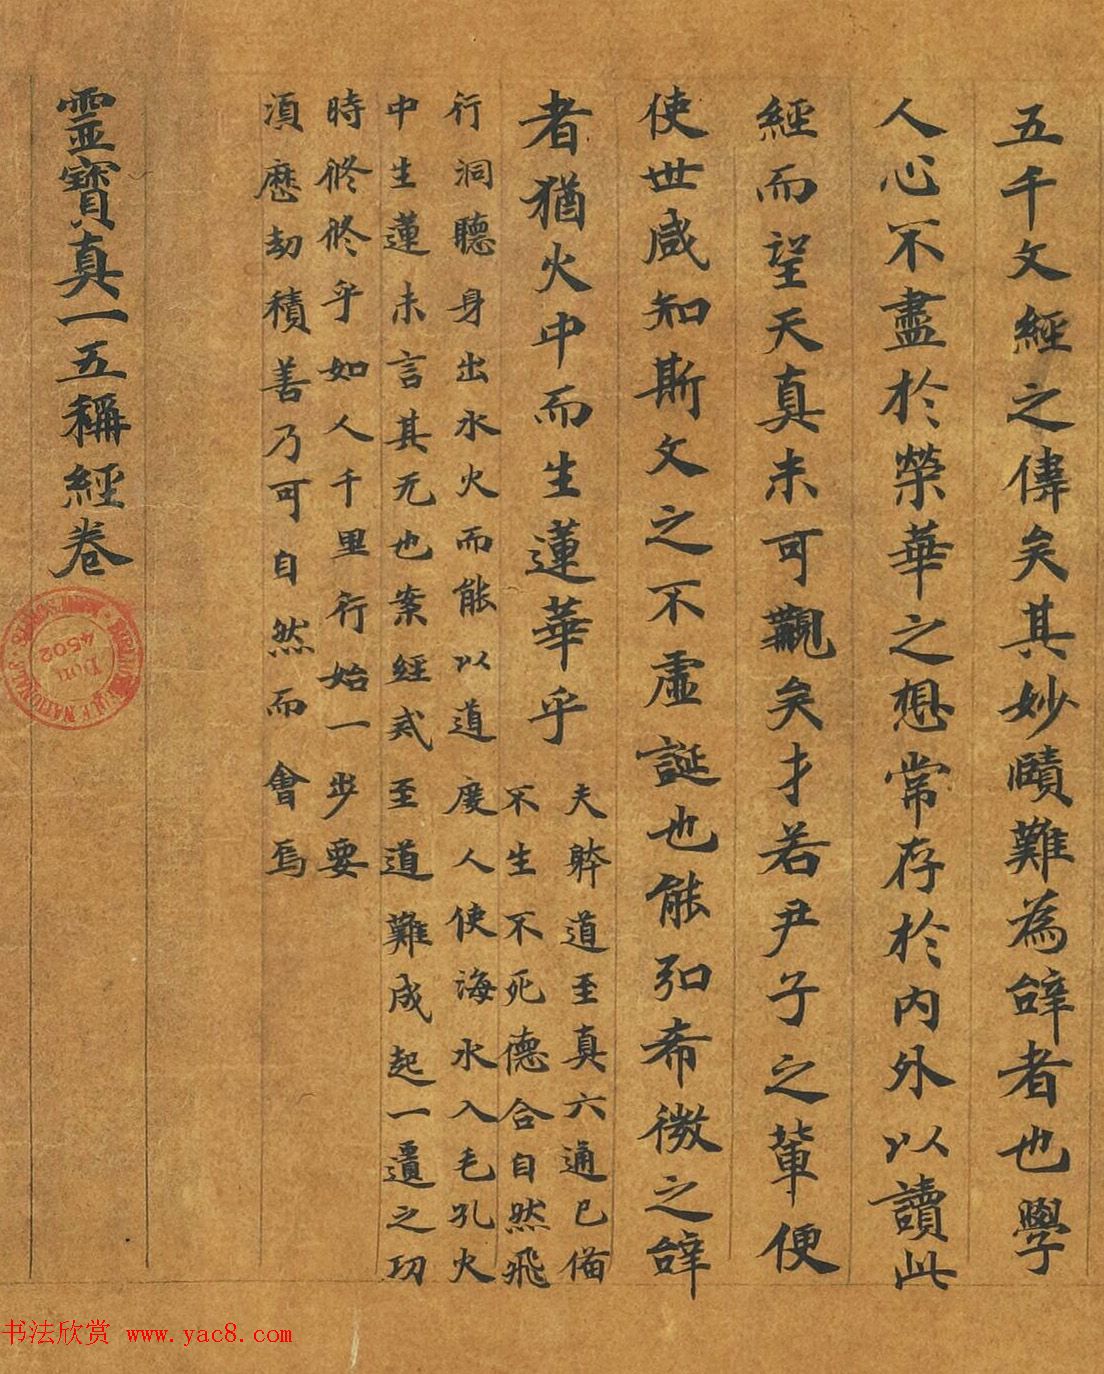 五千文經之偉矣其妙賾難為辝者也學
人心不盡於榮華之想常存於內外以讀此
經而望天真未可觀矣才若尹子之輩便
使世咸知斯文之不虛誕也能弘希微之辝
者猶火中而生蓮華乎
夫躰道至真六通已俻
不生不死德合自然飛
行洞聽身出水火而能以道度人使海水入毛孔火
中生蓮未言其无也案經戒至道難成起一之功
時修修乎如人千里行始一步要
須歷劫積善乃可自然而會焉
靈寶真一五稱經卷
Don
4502
书法欣赏 www.yac8.com